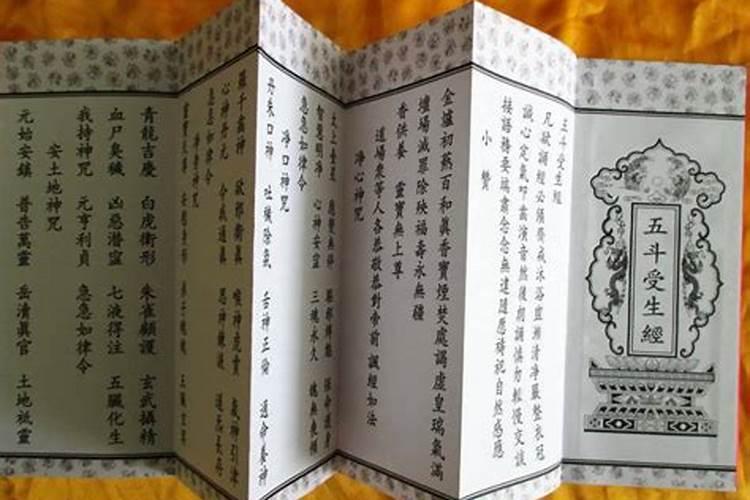 五斗受生經
五斗受生經
凡欲誦經必須齋戒沐浴盥漱清淨嚴整衣冠
誠心定氣叩齒演音然後朗誦慎勿輕慢交談
接語務要端肅念念無違隨應禱祀自然感應
小贊
金爐初熱百和真香寶煙焚處謁虛皇瑞氣滿
壇場滅罪除殃福壽永無疆
香供養 靈寶無上尊
道場眾等人各恭敬恭對帝前 諷經如法
淨心神咒
太上台星 應變無停 驅邪縛魅 保命護身
智慧明淨 心神安寧 三魂永久 魄無喪傾
急急如律令
淨口神咒
丹朱口神 吐穢除氛 舌神正倫 通命養神
羅千齒神 卻邪衛真 喉神虎賁 氣神引津
心神丹元 令我通真 思神鍊液 道炁長存
急急如律令
淨身神咒
靈寶天尊 安慰身形 弟子魂魄 五臟玄冥
青龍吉慶 白虎衛形 朱雀顧護 玄武攝精
血尸臭穢 凶惡潛寧 七液得注 五臟化生
我持神咒 元亨利貞 急急如律令
安土地神咒
元始安鎮 普告萬靈 岳瀆真官 土地祗靈